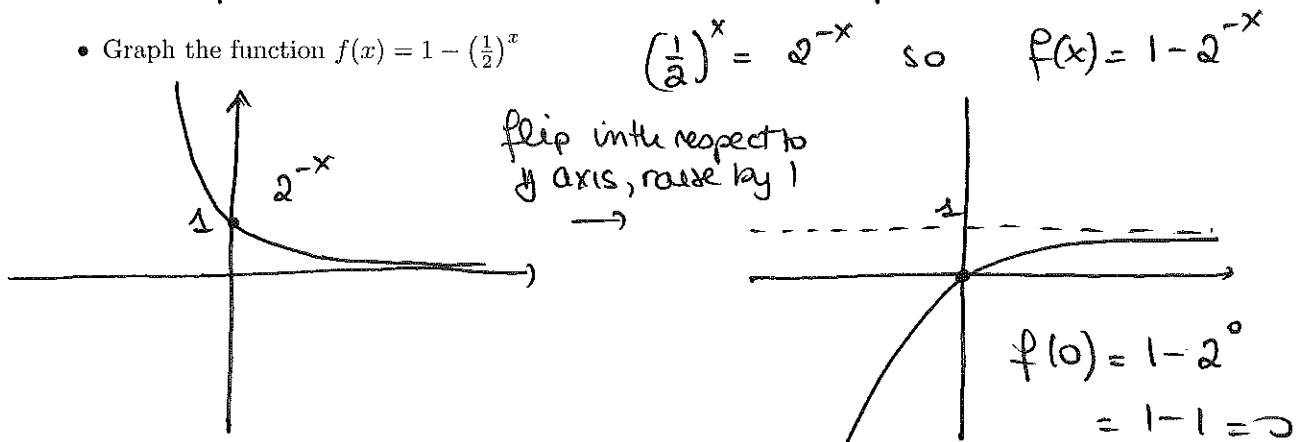 • Graph the function f(x) = 1 − (1/2)^x
(1/2)^x = 2^-x so f(x) = 1 - 2^-x
flip with respect to
y axis, raise by 1
→
2^-x
1
1
f(0) = 1 - 2^0
= 1 - 1 = 0